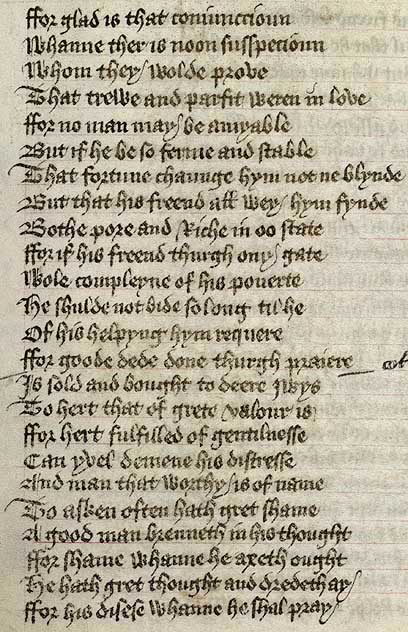 ffor glad is that coniunccioun
Whanne ther is noon susspecioun
Whom they / wolde prove
That trewe and parfit weren in love
ffor no man may / be amyable
But if he be so ferme and stable
That fortune chaunge hym not ne blynde
But that his freend all wey / hym fynde
Bothe pore and Riche in oo state
ffor if his freend thurgh ony / gate
Wole compleyne of his pouerte
He shulde not bide so long til he
Of his helpyng hym requere
ffor goode dede done thurgh praiere
Is sold and bought to deere Iwys
To hert that of grete valour is
ffor hert fulfilled of gentilnesse
Can yvel demene his distresse
And man that worthy / is of name
To asken often hath gret shame
A good man brenneth in his thought
ffor shame whanne he axeth ought
He hath gret thought and dredeth ay /
ffor his disese whanne he shal pray /